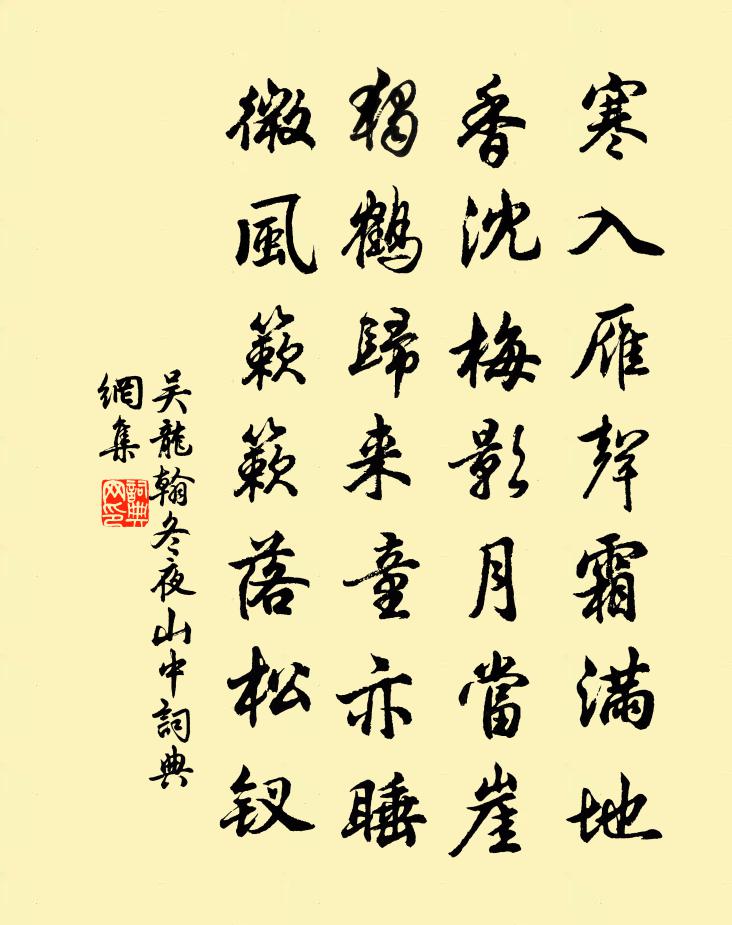 寒入雁聲霜滿地
香沈梅影月當崖
獨鶴歸来童亦睡
微風簌簌落松釵
吴龍翰冬夜山中詞典
網集
詞典
网印